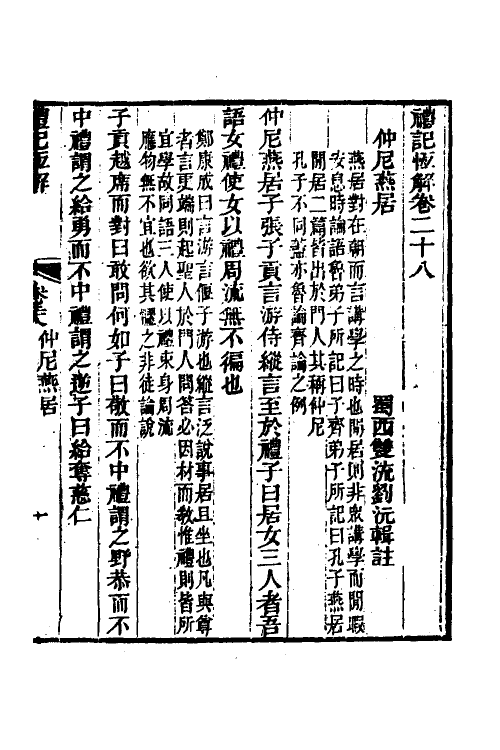 禮記恆解卷二十八
仲尼燕居
蜀西雙流劉沅輯註
燕居對在朝而言講學之時也閒居則非眾講學而閒暇
安息時論語魯弟子所記曰子齊弟子所記曰孔子燕居
閒居二篇皆出於門人其稱仲尼
孔子不同蓋亦魯論齊論之例
仲尼燕居子張子貢言游侍縱言至於禮子曰居女三人者吾
語女禮使女以禮周流無不徧也
鄭康成曰言游言偃子游也縱言泛說事居且坐也凡與尊
者言更端則起聖人於門人問答必因材而教惟禮則皆所
宜學故同語三人使以禮束身周流
應物無不宜也欲其體之非徒論說
子貢越席而對曰敢問何如子曰敬而不中禮謂之野恭而不
中禮謂之給勇而不中禮謂之逆子曰給奪慈仁
禮記恆解
卷二十八 仲尼燕居
十